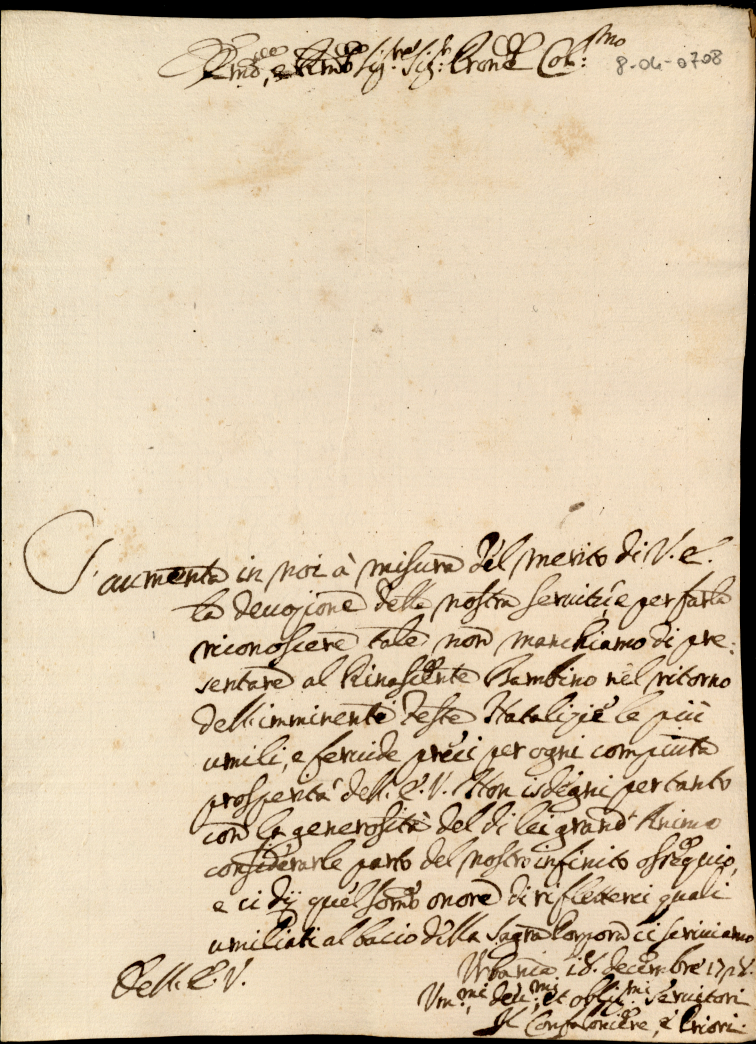 Em.mo, e R.mo Sig.re Sig.r Pron.e Col.mo
8-04-0708
S'aumenta in noi à misura del merito di V. E.
la deuozione della nostra seruitù, e per farla
riconoscere tale non manchiamo di pre:
sentare al Rinascente Bambino nel ritorno
dell'imminenti feste Natalizie le più
umili, e feruide preci per ogni compiuta
prosperità dell'E. V. Non isdegni per tanto
con la generosità del di lei grand'Animo
considerarle parto del nostro infinito ossequio,
e ci dij quel sommo onore di rifletterci, quali
umiliati al bacio della Sagra Porpora ci scriviamo
Dell'E. V.
Urbania 18. decembre
Um.mi, deu.mi, et obblig.mi Seruitori
Il Confaloniere, e Priori